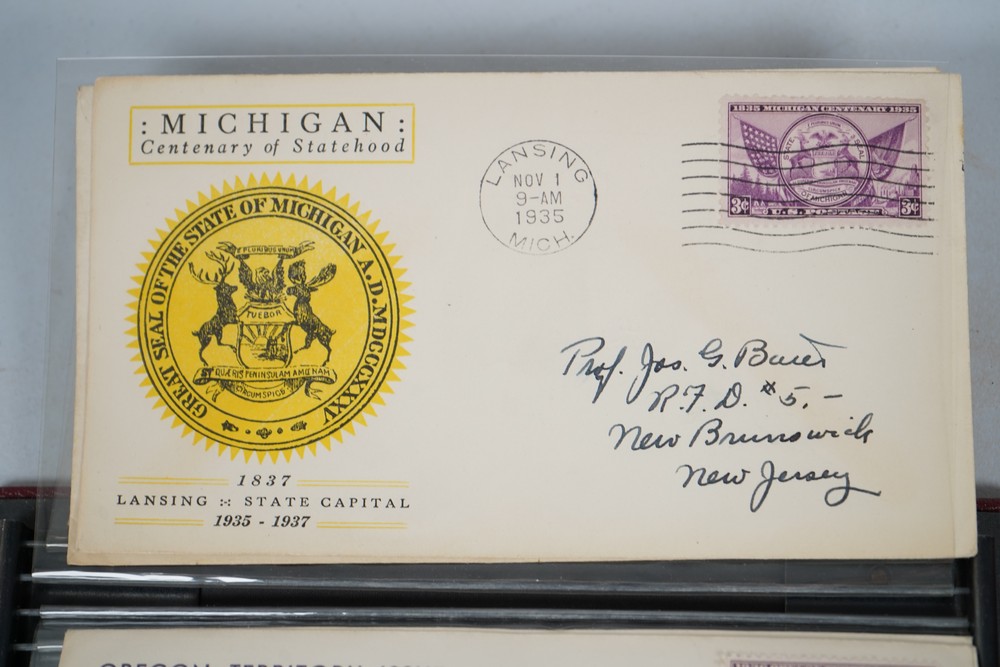 : MICHIGAN :
Centenary of Statehood
GREAT SEAL OF THE STATE OF MICHIGAN A.D. MDCCCXXXV
E PLURIBUS UNUM
TUEBOR
QUÆRIS PENINSULAM AMŒNAM
CIRCUMSPICE
1837
LANSING :-: STATE CAPITAL
1935 - 1937
LANSING
NOV 1
9-AM
1935
MICH.
1835 MICHIGAN CENTENARY 1935
STATE SEAL
OF MICHIGAN
3¢ U.S. POSTAGE 3¢
Prof. Jos. G. Bauer
R.F.D. #5, -
New Brunswick
New Jersey
OREGON TERRITORY